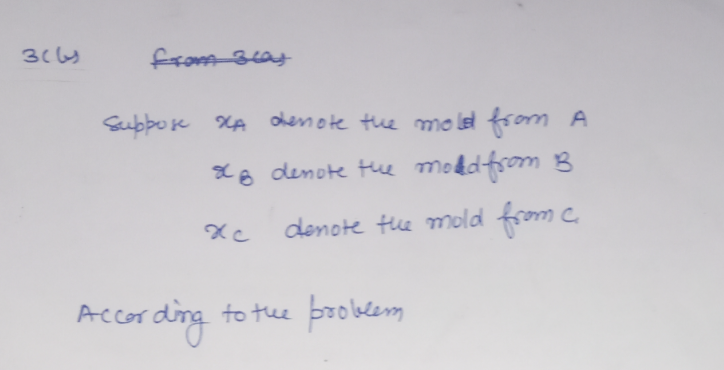 3(b) from 3(a)
Suppose xA denote the mold from A
xB denote the mold from B
xC denote the mold from C
According to the problem